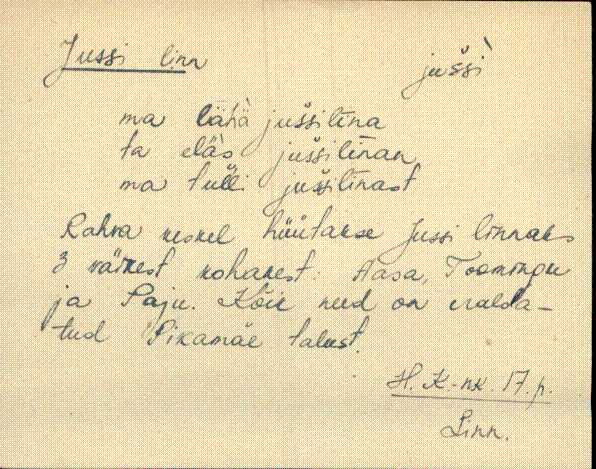 Jussi linn jušši`
ma lähä juššilina
ta eläs juššilinan
ma tulli juššilinast
Rahva keskel hüütakse Jussi linnaks
3 väikest kohakest: Aasa, Toomingu
ja Paju. Kõik need on eralda-
tud Pikamäe talust.
H. K-nk. 17. p.
Linn.